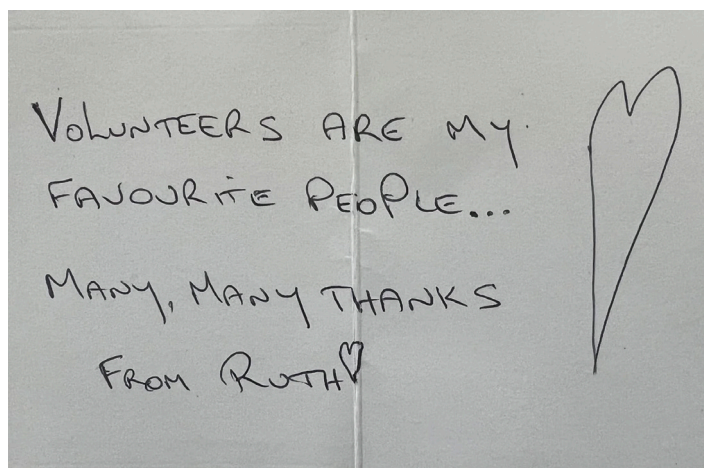 VOLUNTEERS ARE MY
FAVOURITE PEOPLE...
MANY, MANY THANKS
FROM RUTH♡